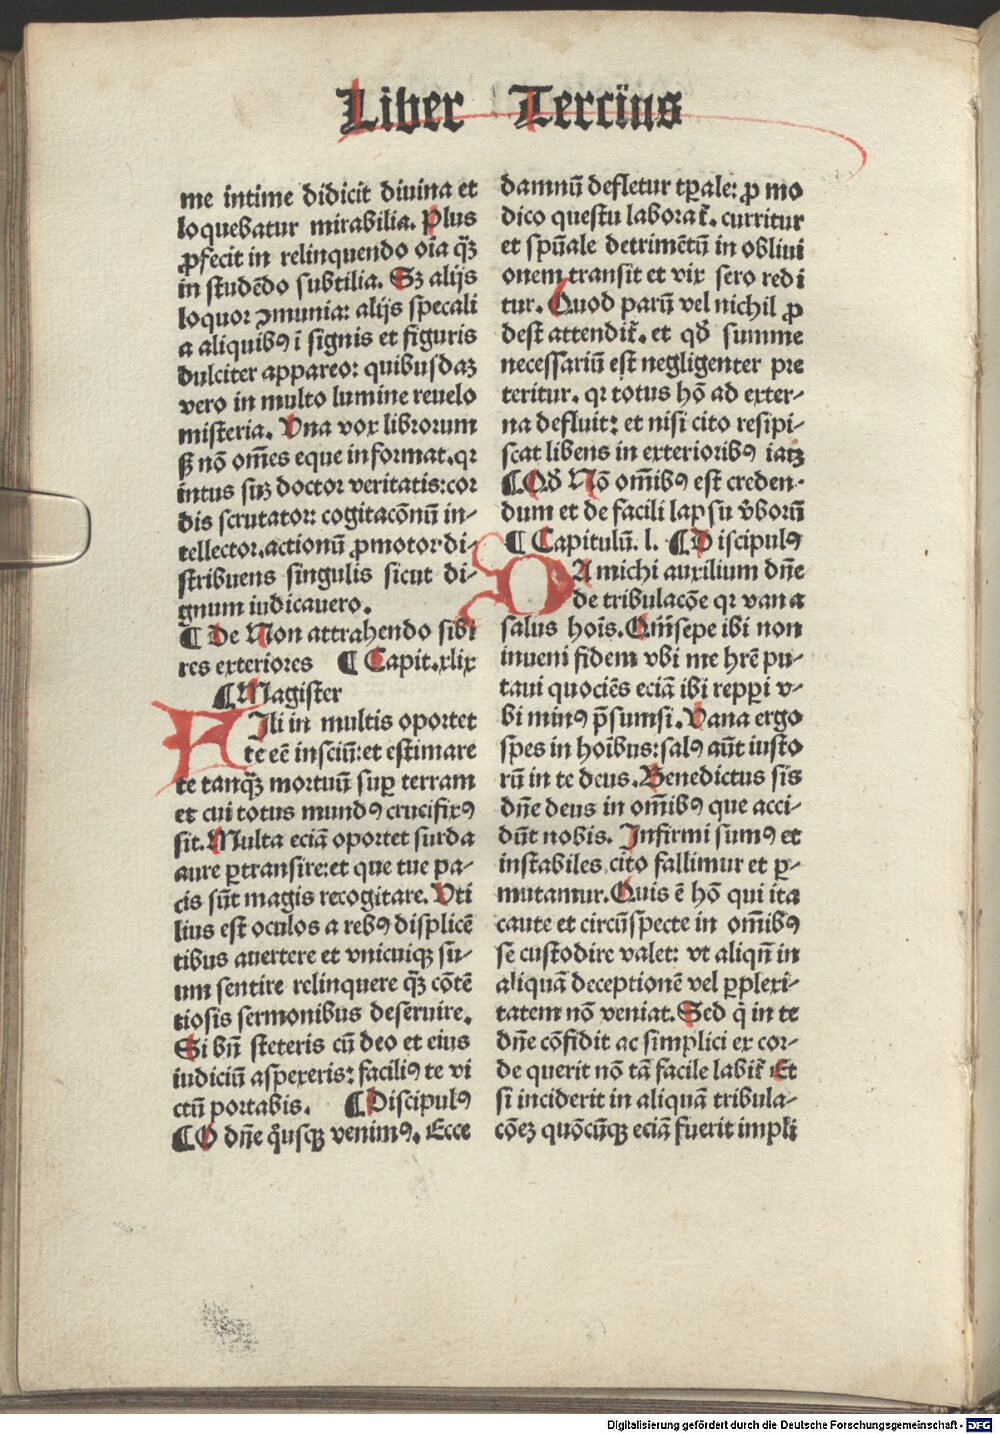 Liber Tercius
me intime didicit diuina et
loquebatur mirabilia. Plus
ꝓfecit in relinquendo oīa qͣꝫ
in studēdo subtilia. Sꝫ alijs
loquor ꝯmunia: alijs specali
a aliquibꝰ ī signis et figuris
dulciter appareo: quibusdaꝫ
vero in multo lumine reuelo
misteria. Vna vox librorum
ꝭ nō om̄es eque informat. qꝛ
intus suꝫ doctor veritatis: cor
dis scrutator: cogitacōnū in-
tellector. actionū ꝓmotor di-
stribuens singulis sicut di-
gnum iudicauero.
¶ De Non attrahendo sibi
res exteriores ¶ Capit. xlix
¶ Magister
FIli in multis oportet
te eē insciū: et estimare
te tanqͣꝫ mortuū suꝑ terram
et cui totus mundꝰ crucifixꝰ
sit. Multa eciā oportet surda
aure ꝑtransire: et que tue pa-
cis sūt magis recogitare. Vti
lius est oculos a rebꝰ displicē
tibus auertere et vnicuiqꝫ su-
um sentire relinquere qͣꝫ cōtē
tiosis sermonibus deseruire.
Si bn̄ steteris cū deo et eius
iudiciū aspexeris: faciliꝰ te vi
ctū portabis. ¶ Discipulꝰ
¶ O dn̄e qͦusqꝫ venimꝰ. Ecce
damnū defletur tꝑale: ꝓ mo
dico questu laborat᷑. curritur
et spūale detrimētū in obliui
onem transit et vix sero redi
tur. Quod parū vel nichil ꝓ
dest attendit᷑. et qđ summe
necessariū est negligenter pre
teritur. qꝛ totus hō ad exter-
na defluit: et nisi cito resipi-
scat libens in exterioribꝰ iacꝫ
¶ Qđ Nō om̄ibꝰ est creden-
dum et de facili lapsu v̓borū
¶ Capitulū. l. ¶ Discipulꝰ
DA michi auxilium dn̄e
de tribulacōe qꝛ vana
salus hoīs. Qm̄sepe ibi non
inueni fidem vbi me hr̄e pu-
taui quociēs eciā ibi repꝑi v-
bi minꝰ p̄sumsi. Vana ergo
spes in hoībus: salꝰ aūt iusto
rū in te deus. Benedictus sis
dn̄e deus in om̄ibꝰ que acci-
dūt nobis. Infirmi sumꝰ et
instabiles cito fallimur et ꝑ-
mutamur. Quis ē hō qui ita
caute et circūspecte in om̄ibꝰ
se custodire valet: vt aliqn̄ in
aliquā deceptionē vel ꝑplexi-
tatem nō veniat. Sed qͥ in te
dn̄e cōfidit ac simplici ex cor-
de querit nō tā facile labit᷑ Et
si inciderit in aliquā tribula-
cōeꝫ quōcūqꝫ eciā fuerit impli
Digitalisierung gefördert durch die Deutsche Forschungsgemeinschaft - DFG